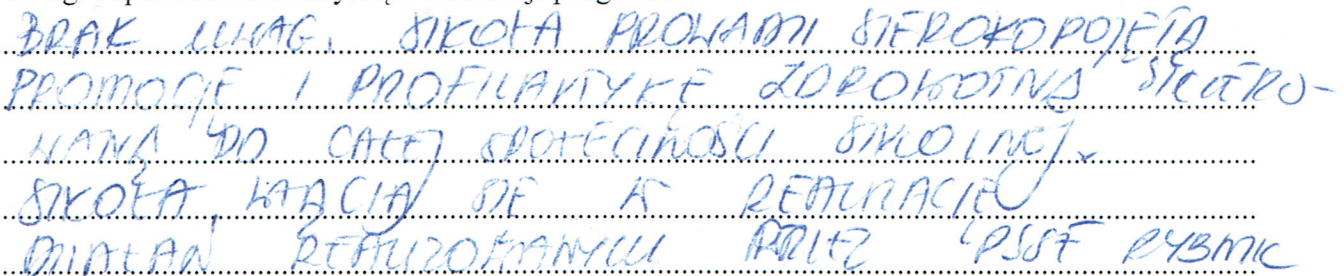 BRAK UWAG. SZKOŁA PROWADZI SZEROKOPOJĘTĄ
PROMOCJĘ I PROFILAKTYKĘ ZDROWOTNĄ SKIERO-
WANĄ DO CAŁEJ SPOŁECZNOŚCI SZKOLNEJ.
SZKOŁA WŁĄCZA SIĘ W REALIZACJĘ
DZIAŁAŃ REALIZOWANYCH PRZEZ PSSE RYBNIK